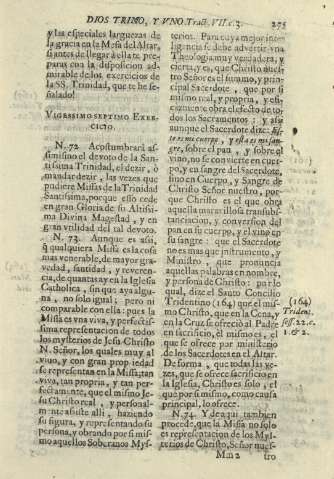 DIOS TRINO, Y VNO. Tract. VII. c. 3. 275
y las especiales larguezas de
la gracia en la Mesa del Altar,
si antes de llegar à ella te pre-
paras con la disposicion ad-
mirable de los exercicios de
la SS. Trinidad, que te he se-
ñalado!
VIGESSIMO SEPTIMO EXER-
CICIO.
N. 72. Acostumbrarà as-
simismo el devoto de la San-
tissima Trinidad, el dezir, ò
mandar dezir, las vezes que
pudiere Missas de la Trinidad
Santissima, porque esto cede
en gran Gloria de su Altissi-
ma Divina Magestad, y en
gran vtilidad del tal devoto.
N. 73. Aunque es assi,
q̃ qualquiera Missa es la cosa
mas venerable, de mayor gra-
vedad, santidad, y reveren-
cia, de quantas ay en la Iglesia
Catholica, sin que aya algu-
na, no solo igual; pero ni
comparable con ella: pues la
Missa es vna viva, y perfectis-
sima representacion de todos
los mysterios de Jesu Christo
N. Señor, los quales muy al
vivo, y con gran propiedad
se representan en la Missa; tan
viva, tan propria, y tan per-
fectamente, que el mismo Je-
su Christo real, y personal-
mente assiste alli, haziendo
su figura, y representando su
persona, y obrando por si mis-
mo aquellos Soberanos Mys-
terios. Para cuya mejor inte-
ligencia se debe advertir vna
Theologia muy verdadera, y
cierta; y es, que Christo nues-
tro Señor es el sumo, y prin-
cipal Sacerdote, que por si
mismo real, y propria, y efi-
cazmente obra el efecto de to-
dos los Sacramentos: y assi
aunque el Sacerdote dize: Es-
te es mi cuerpo, y esta es mi san-
gre, sobre el pan, y sobre el
vino, no se convierte en cuer-
po, y en sangre del Sacerdote,
sino en Cuerpo, y Sangre de
Christo Señor nuestro, por-
que Christo es el que obra
aquella maravillosa transubs-
tanciacion, y conversion del
pan en su cuerpo, y el vino en
su sangre: que el Sacerdote
no es mas que instrumento, y
Ministro, que pronuncia
aquellas palabras en nombre,
y persona de Christo: por lo
qual, dize el Santo Concilio
Tridentino (164) que el mis-
mo Christo, que en la Cena, y
en la Cruz se ofreciò al Padre
en sacrificio, el mismo es, el
que se ofrece por ministerio
de los Sacerdotes en el Altar.
De forma, que todas las ve-
zes, que se ofrece sacrificio en
la Iglesia, Christo es solo, el
que por si mismo, como causa
principal, lo ofrece.
N. 74. Y de aqui tambien
procede, que la Missa no solo
es representacion de los Mys-
terios de Christo, Señor nues-
Mm 2 tro
(164)
Trident.
sess. 22. c.
1. & 2.